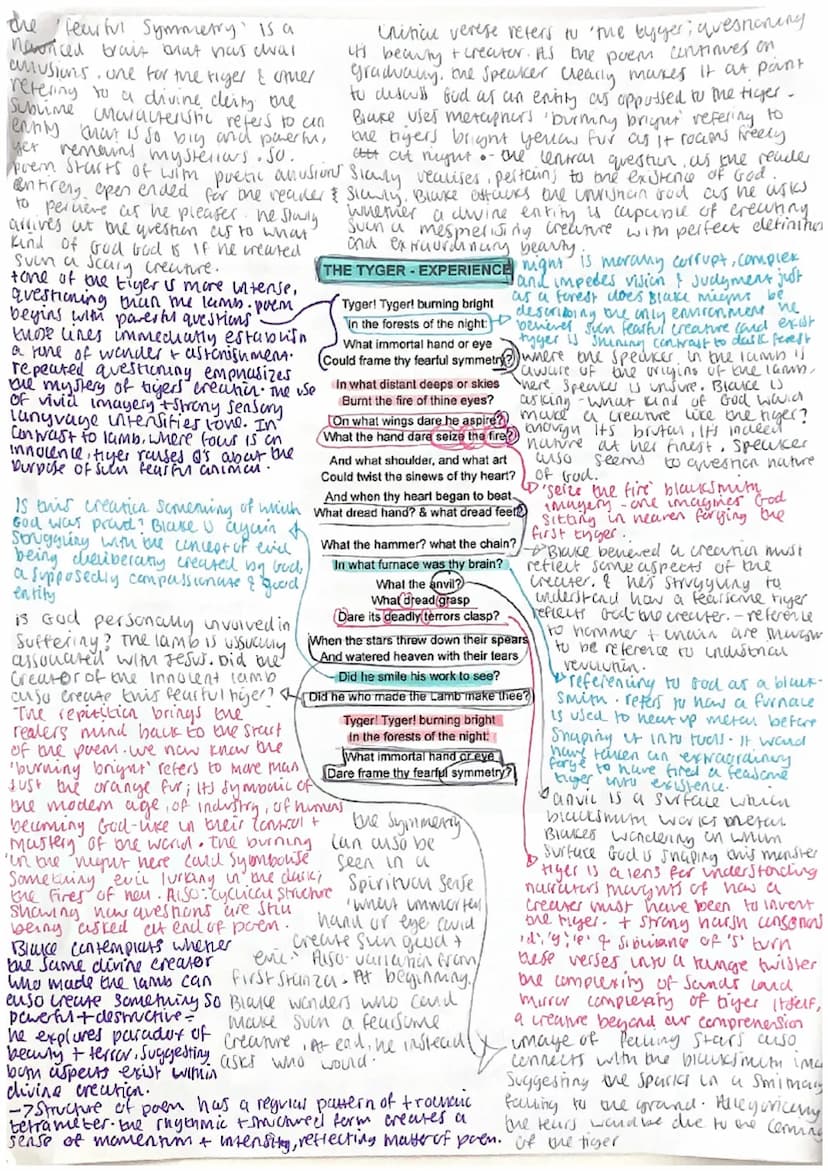 the 'fearful Symmetry' is a
nuanced trait that has dual
allusions. one for the tiger & other
refering to a divine deity the
sublime characteristic refers to an
entity that is so big and powerful,
yet remains mysterious. so.
poem starts of with poetic allusions
entirely open ended for the reader &
to perceive as he pleases. he slowly
arrives at the question as to what
kind of God God is if he created
such a scary creature.
tone of the tiger is more intense,
questioning than the lamb. poem
begins with powerful questions
those lines immediately establish
a tone of wonder + astonishment.
repeated questioning emphasizes
the mystery of tigers creation. the use
of vivid imagery + strong sensory
language intensifies tone. In
contrast to lamb, where focus is on
innocence, tiger raises Q's about the
purpose of such fearful animal.
Is this creation something of which
God was proud? Blake is again
struggling with the concept of evil
being deliberately created by God,
a supposedly compassionate & good
entity
is God personally involved in
suffering? The lamb is usually
associated with Jesus. Did the
creator of the innocent lamb
also create this fearful tiger?
The repitition brings the
readers mind back to the start
of the poem. we now know the
'burning bright' refers to more than
just the orange fur; its symbolic of
the modern age, of industry, of humans
becoming God-like in their control +
mastery of the world. The burning
'in the night' here could symbolise
something evil lurking in the dark;
the fires of hell. Also: cyclical structure
showing how questions are still
being asked at end of poem.
Blake contemplats whether
the same divine creator
who made the lamb can
also create something so
powerful + destructive -
he explores paradox of
beauty + terror, suggesting
both aspects exist within
divine creation.
→ Structure of poem has a regular pattern of trochaic
tetrameter. the rhythmic + structured form creates a
sense of momentum + intensity, reflecting matter of poem.
Initial verese refers to 'the tyger', questioning
its beauty + creator. As the poem continues on
gradually, the speaker clearly makes it at point
to discuss God as an entity as oppossed to the tiger -
Blake uses metaphors 'burning bright' refering to
the tigers bright yellow fur as it roams freely
at night. - the central question, as the reader
slowly realises, pertains to the existence of God.
Slowly, Blake attacks the christian God as he asks
whether a divine entity is capable of creating
such a mesperising creature with perfect definition
and extraordinary beauty.
THE TYGER - EXPERIENCE
Tyger! Tyger! burning bright
In the forests of the night:
What immortal hand or eye
Could frame thy fearful symmetry?
In what distant deeps or skies
Burnt the fire of thine eyes?
On what wings dare he aspire?
What the hand dare seize the fire?
And what shoulder, and what art
Could twist the sinews of thy heart?
And when thy heart began to beat
What dread hand? & what dread feet?
What the hammer? what the chain?
In what furnace was thy brain?
What the anvil?
What dread grasp
Dare its deadly terrors clasp?
When the stars threw down their spears
And watered heaven with their tears
Did he smile his work to see?
Did he who made the Lamb make thee?
Tyger! Tyger! burning bright
In the forests of the night:
What immortal hand or eye
Dare frame thy fearful symmetry?
the symmetry
can also be
seen in a
spiritual sense
'what immortal
hand or eye could
create such good +
evil? Also: variation from
first stanza. At beginning,
Blake wonders who could
make such a fearsome
creature, At end, he instead
asks who would.
night is morally corrupt, complex
and impedes vision & judgment just
as a forest does Blake might be
describing the only environment he
believes such fearful creature could exist
tiger is shining contrast to dark forest
where the speaker in the lamb is
aware of the origins of the lamb,
here speaker is unsure. Blake is
asking - what kind of God would
make a creature like the tiger?
though its brutal, its indeed
nature at her finest. speaker
also seems to question nature
of God.
'seize the fire' blacksmith
imagery - one imagines God
sitting in heaven forging the
first tyger.
→ Blake believed a creation must
reflect some aspects of the
creater, & he's struggling to
understand how a fearsome tiger
reflects God the creater. - reference
to hammer + chain are
to be reference to industrial
revolution.
referencing to God as a black-
smith. refers to how a furnace
is used to heat up metal before
shaping it into tools. It would
have taken an extraordinary
forge to have fired a fearsome
tiger into existence.
anvil is a surface which
blacksmith works metal
Blakes wondering on which
surface God is shaping this monster
tiger is a lens for understanding
narrators thoughts of how a
creater must have been to invent
the tiger. + strong harsh consonants
'd', 'g', & sibilance of 'S' turn
these verses into a tounge twister
the complexity of sounds could
mirror complexity of tiger itself,
a creature beyond our comprehension
image of falling stars also
connects with the blacksmith
suggesting the sparks in a smithary
falling to the ground. Allegorically
the tears would be due to the coming
of the tiger